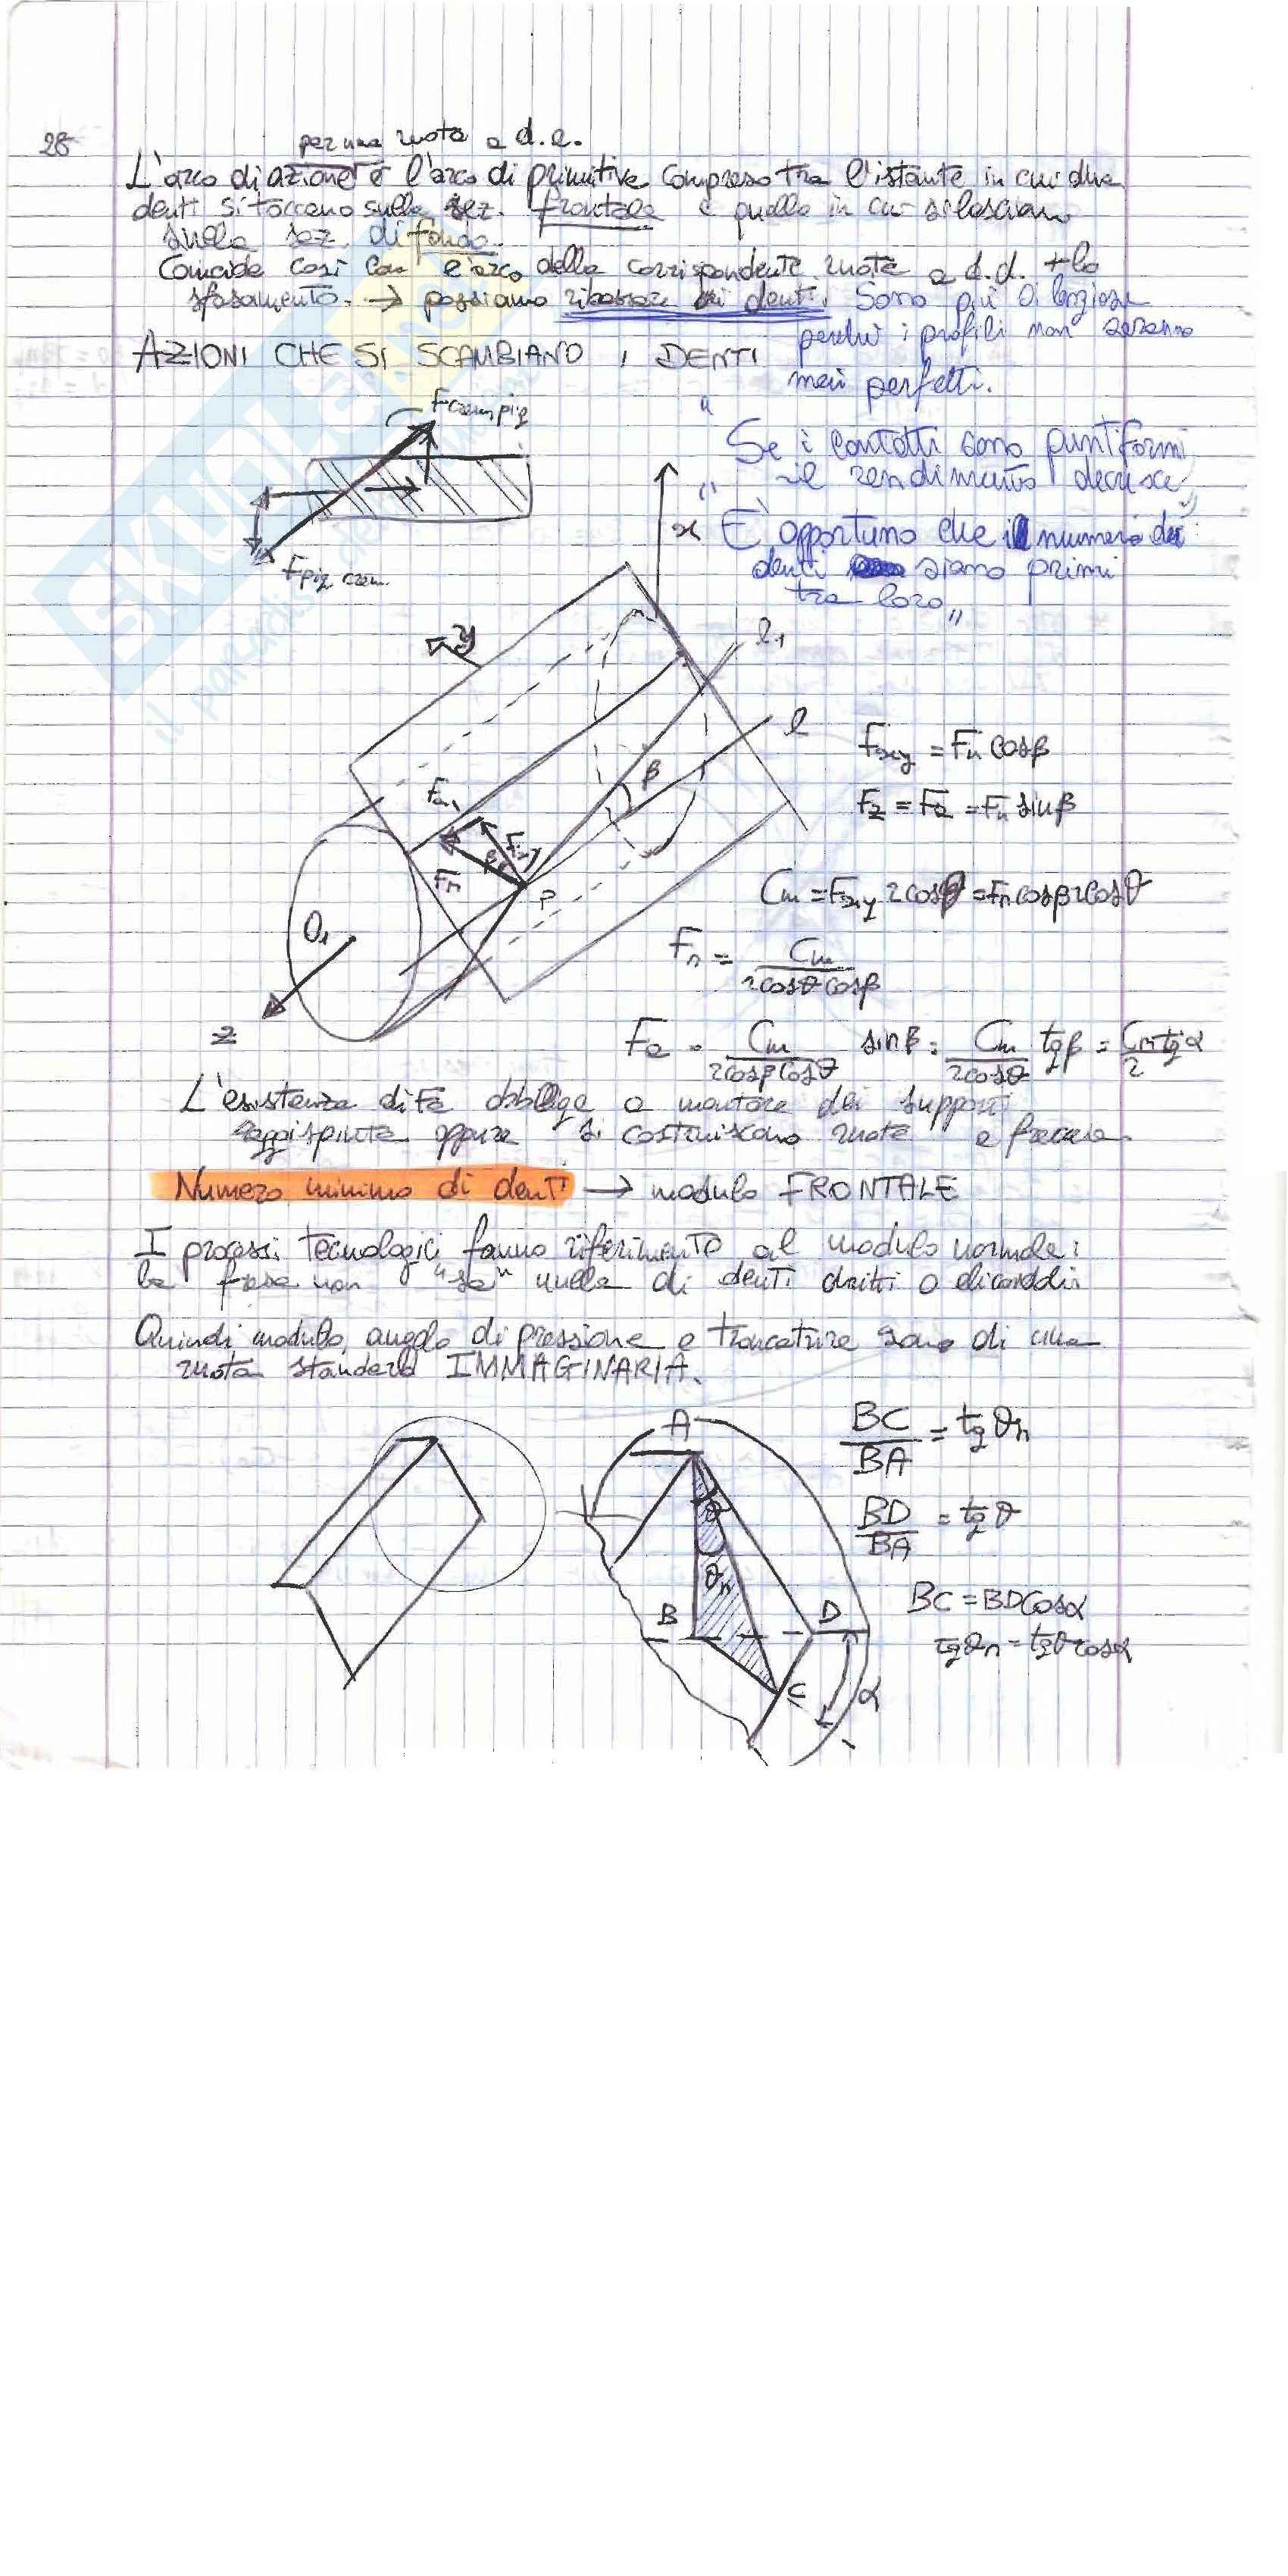 28
per una ruota a d.e.
L'arco di azione è l'arco di primitive compreso tra l'istante in cui due
denti si toccano sulla sez. frontale e quello in cui si lasciano
sulla sez. di fondo.
Coincide così con l'arco della corrispondente ruota a d.d. + lo
sfasamento. → possiamo ribassare i denti. Sono più
perché i profili non saranno
mai perfetti.
AZIONI CHE SI SCAMBIANO I DENTI
"Se i contatti sono puntiformi
il rendimento decresce"
"È opportuno che il numero dei
denti siano primi
tra loro"
Fpig
Fpig
x
y
l1
l
β
Fxy
Fn
P
O1
z
Fxy = Fn cosβ
Fz = Fa = Fn sinβ
Cm = Fxy r cosθ = Fn cosβ r cosθ
Fn = Cm / r cosθ cosβ
Fa = Cm / r cosβ cosθ sinβ = Cm / r cosθ tgβ = Cm tgα / r
L'esistenza di Fa obbliga a montare dei supporti
reggispinta oppure si costruiscono ruote a freccia.
Numero minimo di denti → modulo FRONTALE
I processi tecnologici fanno riferimento al modulo normale:
la fresa non "sa" nulla di denti dritti o elicoidali
Quindi modulo, angolo di pressione e troncature sono di una
ruota standard IMMAGINARIA.
A
θ
θn
B
D
C
α
BC / BA = tgθn
BD / BA = tgθ
BC = BD cosα
tgθn = tgθ cosα
SKUOLA
il paradiso dello studente